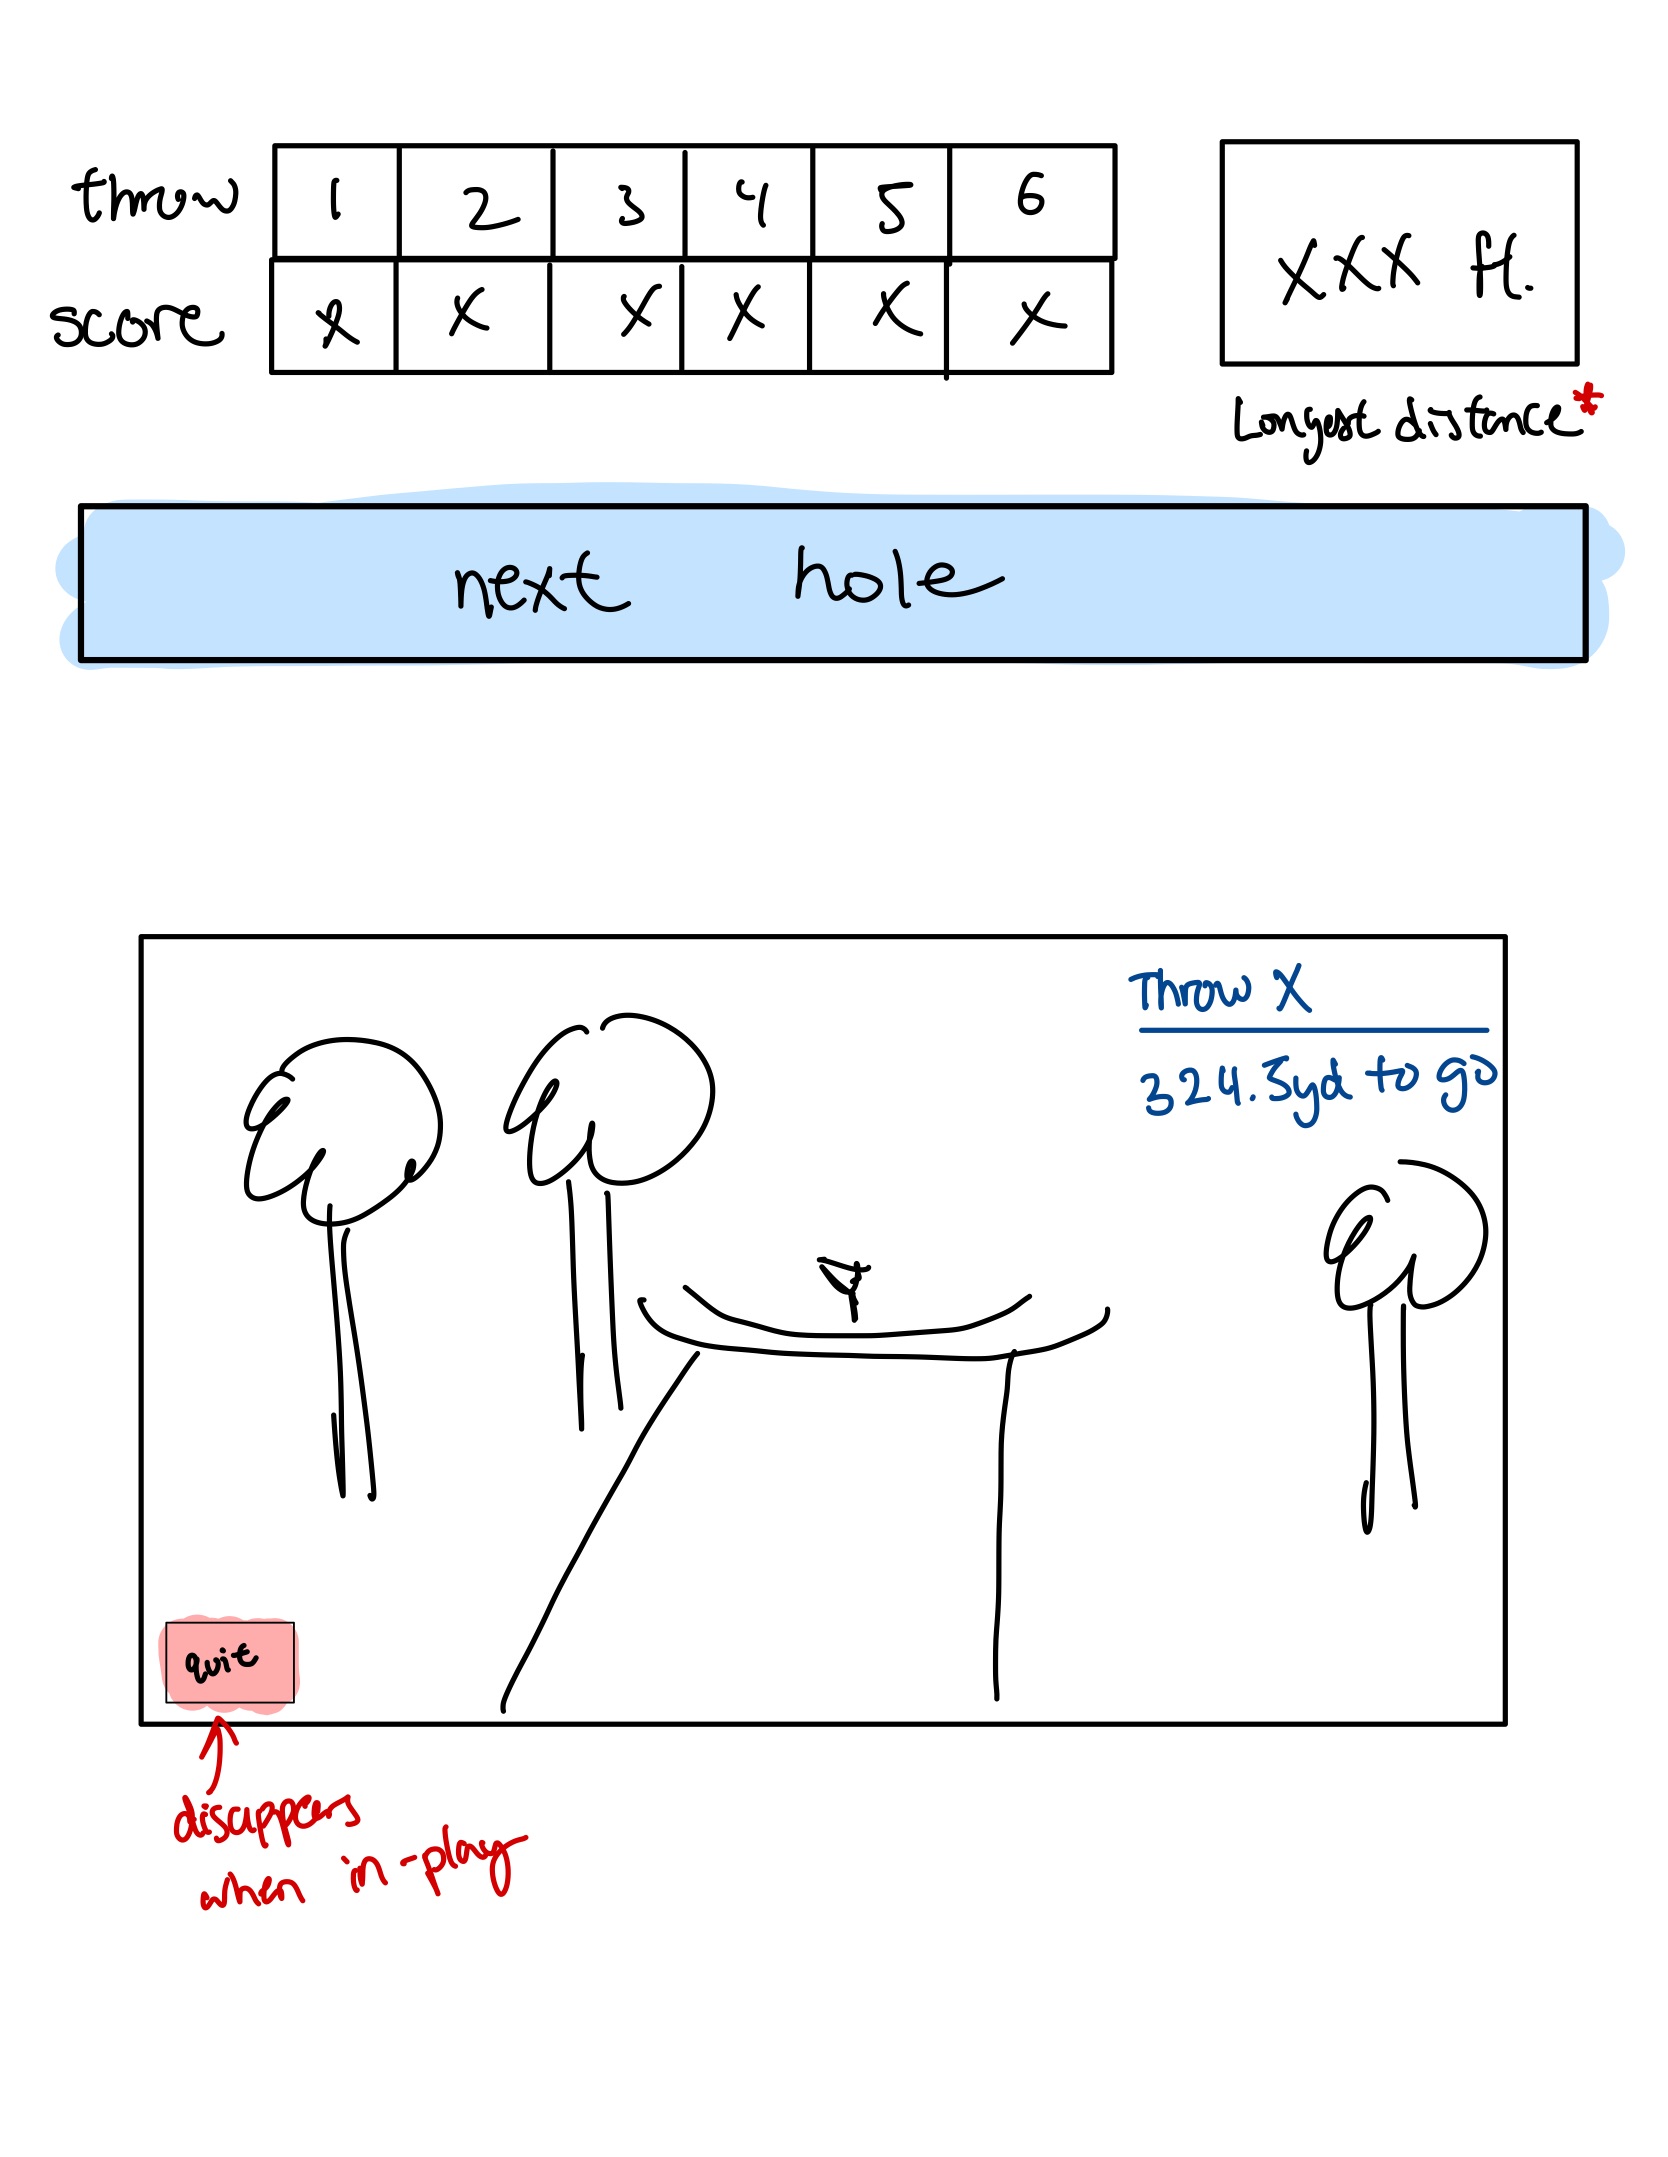 throw 1 2 3 4 5 6
score x x x x x x
xxx ft.
Longest distance*
next hole
Throw X
324.5yd to go
quit
disappears
when in-play